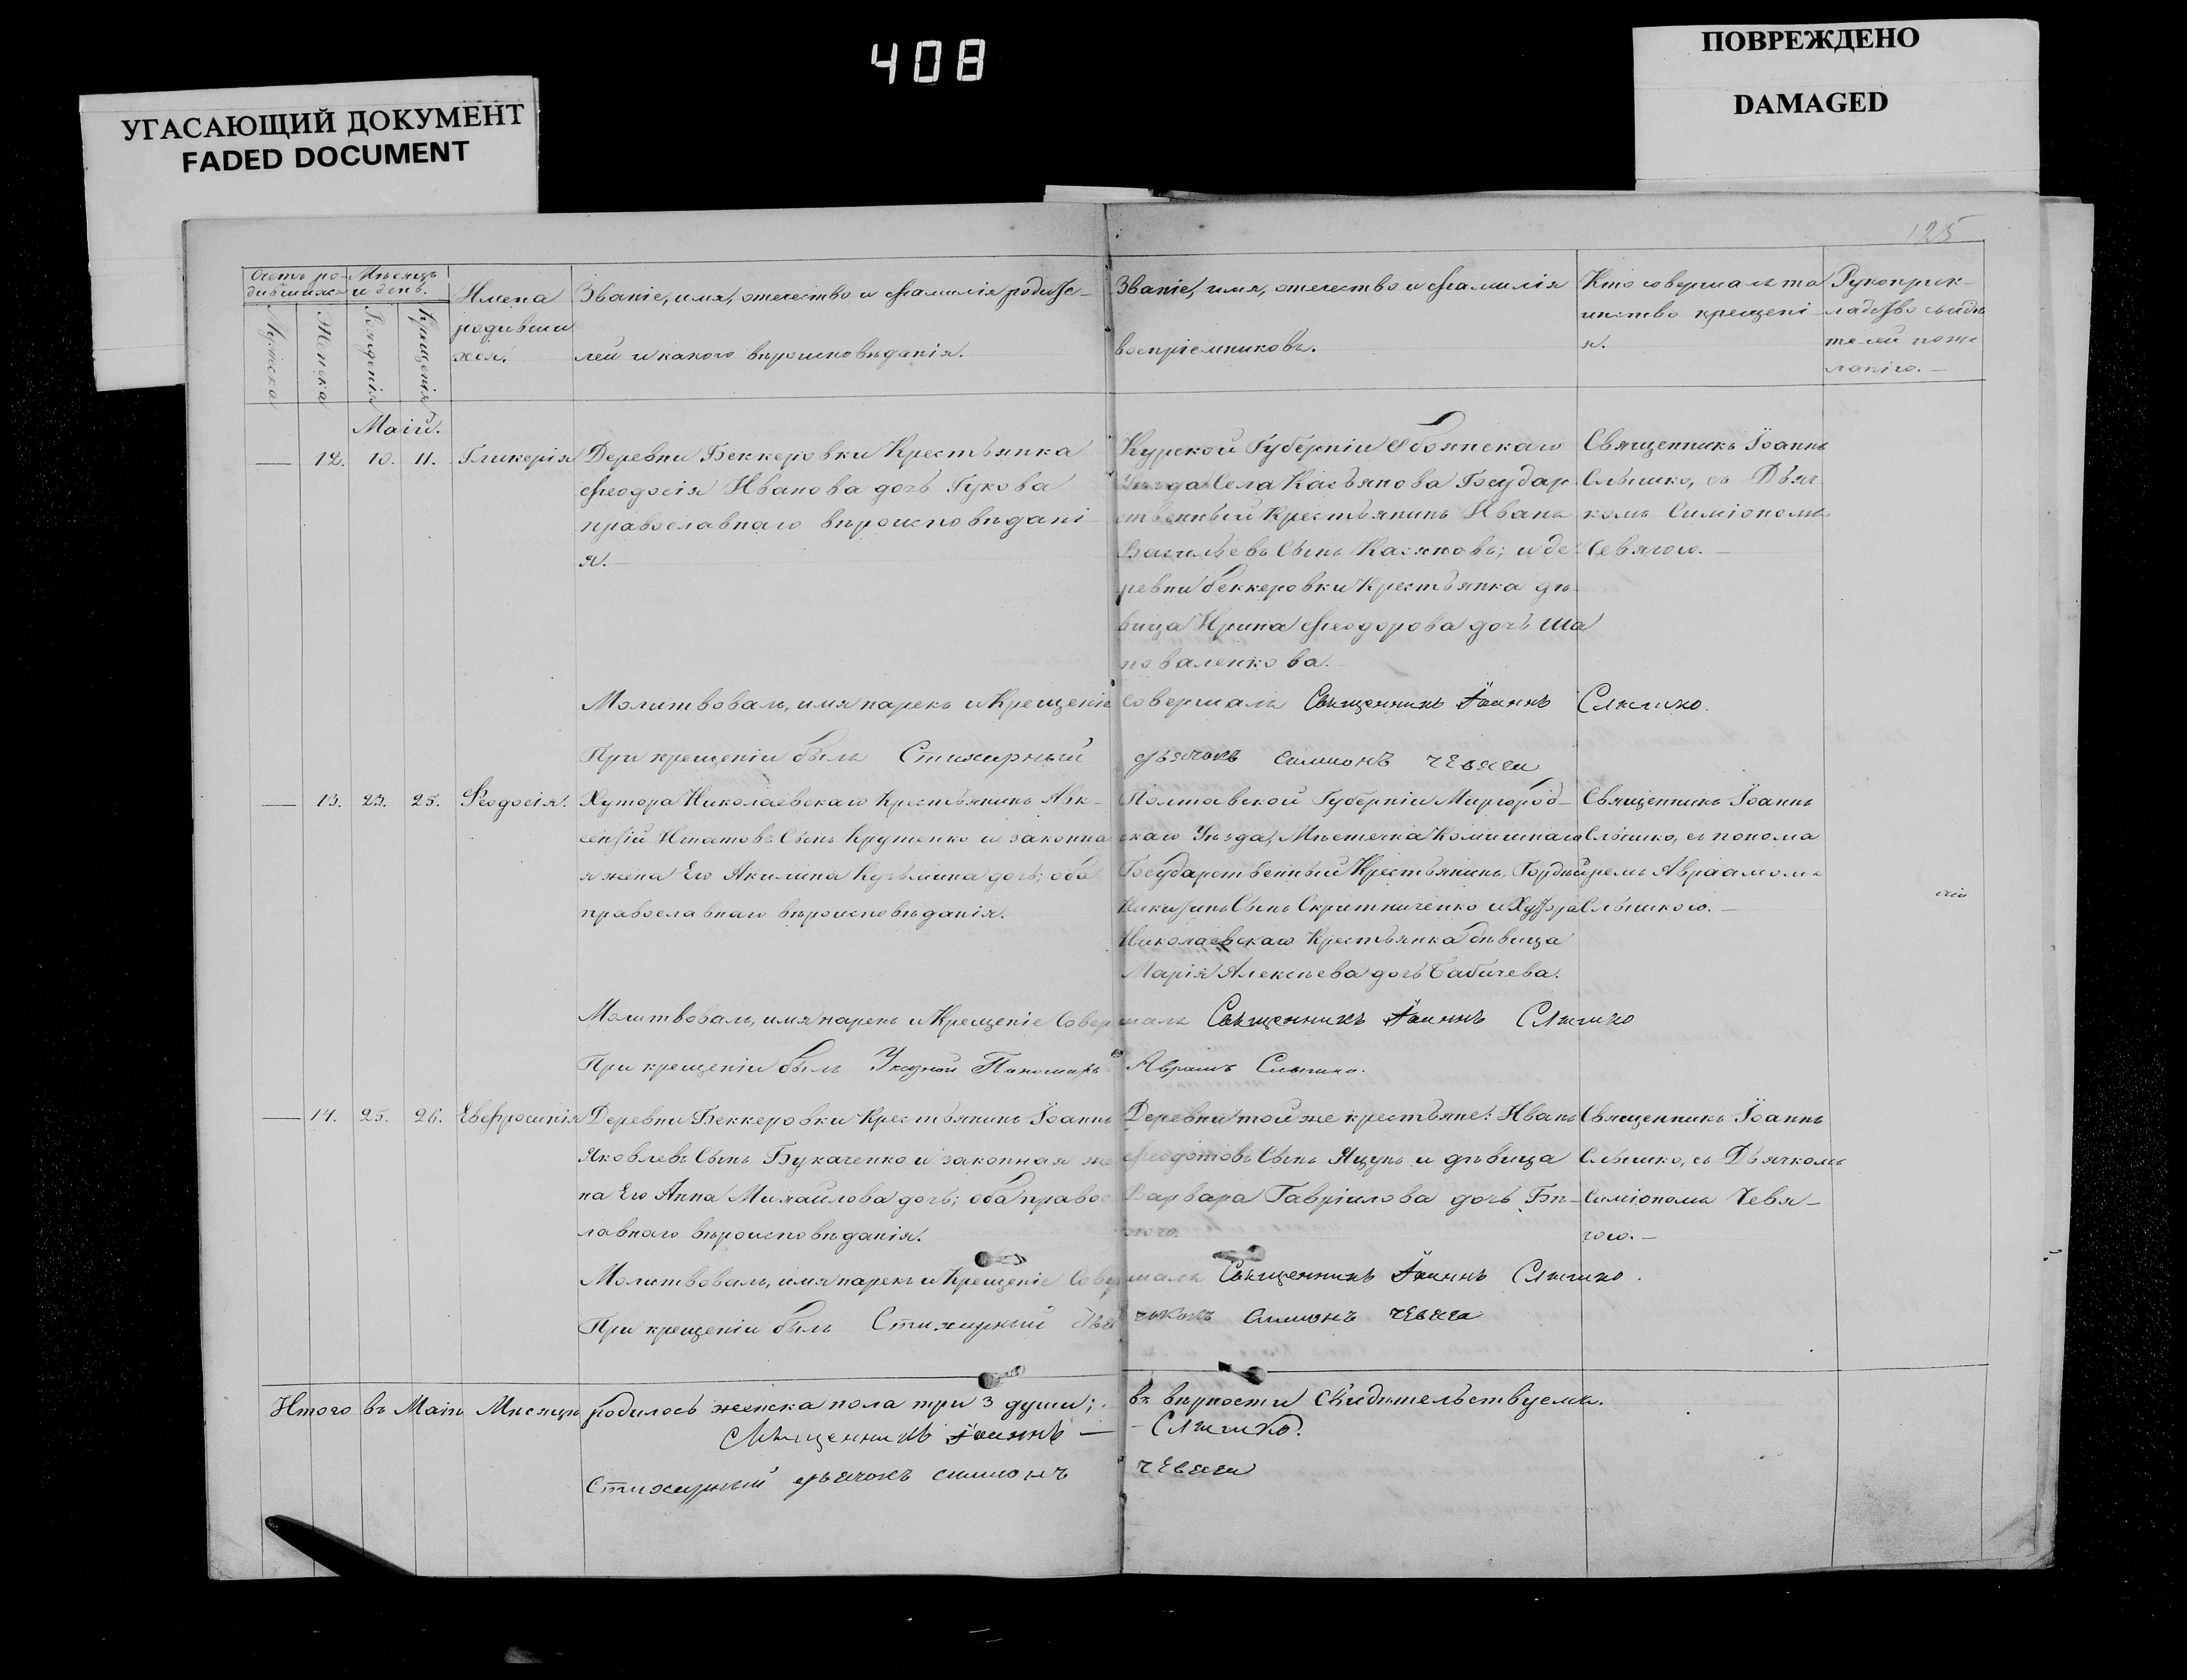 408
ПОВРЕЖДЕНО
DAMAGED
УГАСАЮЩИЙ ДОКУМЕНТ
FADED DOCUMENT
125
Счетъ ро-
дившихся
Мѣсяцъ
и день.
Мужска
Женска
Рожденія
Крещенія
Имена
родивши
хся.
Званіе, имя, отечество и фамилія родите-
лей и какого вѣроисповѣданія.
Званіе, имя, отечество и фамилія
воспріемниковъ.
Кто совершалъ та
инство крещені-
я.
Рукоприк-
ладство свидѣ
телей поже
ланію.
Маій.
12. 10. 11. Гликерія
Деревни Беккеровки Крестьянка
Феодосія Иванова дочь Гукова
православнаго вѣроисповѣдані-
я.
Курской Губерніи Обоянскаго
Уѣзда Села Касьянова Государ
ственный Крестьянинъ Иванъ
Васильевъ Сынъ Касяновъ; и де
ревни беккеровки Крестьянка дѣ
вица Ирина Феодорова дочь Ша
поваленкова.
Священникъ Іоаннъ
Слышко, съ Дьяч
комъ Симіономъ
Чевягою.
Молитвовалъ, имя нарекъ и Крещеніе совершалъ Священникъ Іоаннъ Слышко.
При крещеніи былъ Стихарный дьячокъ Симионъ Чевяга
13. 23. 25. Феодосія.
Хутора Николаевскаго Крестьянинъ Авк-
сентій Игнатовъ Сынъ Крутенко и законна
я жена Его Акилина Кузьмина дочь; оба
православнаго вѣроисповѣданія.
Полтавской Губерніи Миргород-
скаго Уѣзда, Мѣстечка Комишнаго
Государственный Крестьянинъ, Гордѣй
Никитинъ Сынъ Скритниченко и Хутора
Николаевскаго Крестьянка дѣвица
Марія Алексѣева дочь Бабичева.
Священникъ Іоаннъ
Слышко, съ понома
ремъ Авраамомъ
Слышкою.
Молитвовалъ, имя нарекъ и Крещеніе Совершалъ Священникъ Іоаннъ Слышко
При крещеніи былъ Указной Пономарь Авраамъ Слышко.
14. 25. 26. Евфросинія
Деревни Беккеровки Крестьянинъ Іоаннъ
Яковлевъ Сынъ Букаченко и законная же
на Его Анна Михайлова дочь; оба правос
лавнаго вѣроисповѣданія.
Деревни той же крестьяне: Иванъ
Феодотовъ Сынъ Яцунъ и дѣвица
Варвара Гавріилова дочь Бѣ-
Священникъ Іоаннъ
Слышко, съ Дьячкомъ
Симіономъ Чевя-
гою.
Молитвовалъ, имя нарекъ и Крещеніе Совершалъ Священникъ Іоаннъ Слышко.
При крещеніи былъ Стихарный Дьячокъ Симионъ Чевяга
Итого въ Маіи Мѣсяцѣ родилось женска пола три 3 души; въ вѣрности Свидѣтельствуемъ.
Священникъ Іоаннъ — Слышко.
Стихарный дьячокъ Симионъ Чевяга